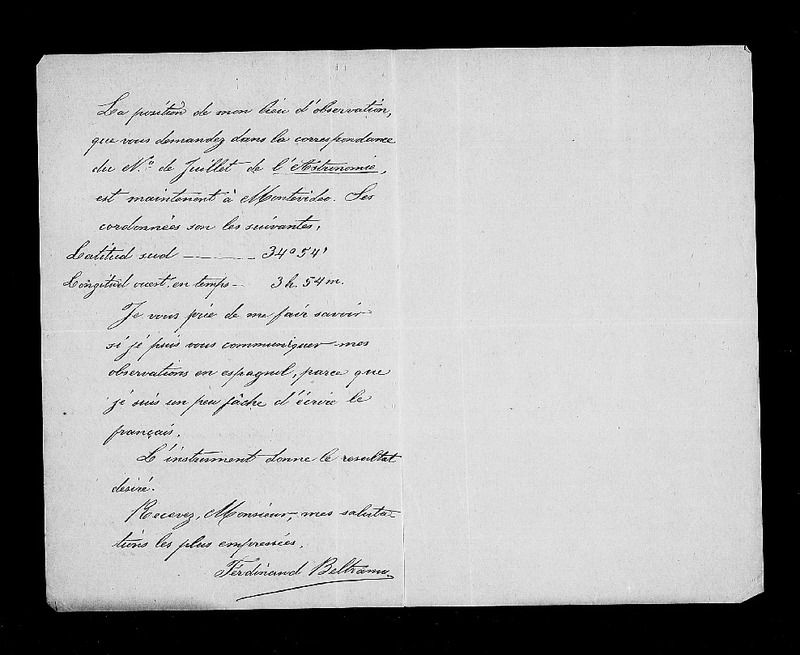 La position de mon lieu d'observation,
que vous demandez dans la correspondance
du N.º de Juillet de l'Astronomie,
est maintenent à Montevideo. Ses
cordonnées son les suivantes,
Latitud sud — — — — 34º 54'
Longitud ouest. en temps — 3 h. 54 m.
Je vous prie de me fair savoir
si je puis vous communiquer mes
observations en espagnol, parce que
je suis un peu fâche d'écrire le
français.
L'instrument donne le resultat
désiré.
Recevez, Monsieur, mes saluta-
tions les plus empressées.
Ferdinand Beltramo